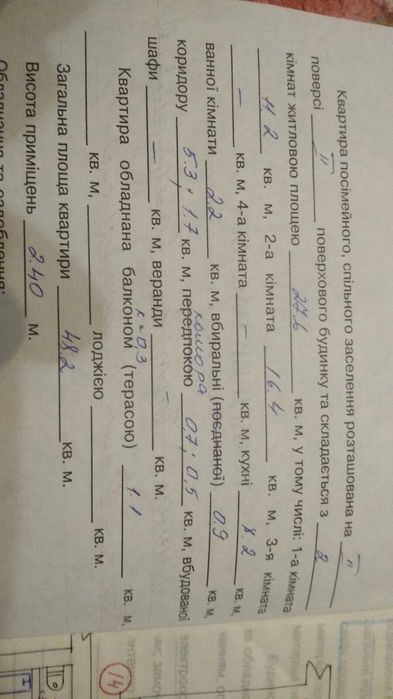 Квартира посімейного, спільного заселення розташована на II
поверсі II поверхового будинку та складається з 2
кімнат житловою площею 27.6 кв. м, у тому числі: 1-а кімната
11.2 кв. м, 2-а кімната 16.4 кв. м, 3-я кімната
— кв. м, 4-а кімната — кв. м, кухні 8.2 кв. м,
ванної кімнати 2.2 кв. м, вбиральні (поєднаної) 0.9 кв. м,
комора
коридору 5.3; 1.7 кв. м, передпокою 0.7; 0.5 кв. м, вбудованої
шафи — кв. м, веранди — кв. м.
к=0,3
Квартира обладнана балконом (терасою) 1.1 кв. м,
кв. м, лоджією кв. м.
Загальна площа квартири 48.2 кв. м.
Висота приміщень 2.40 м.
14